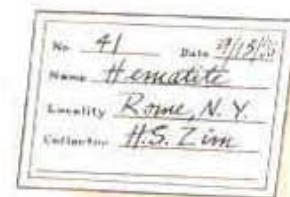 No. 41 Date
Name Hematite
Locality Rome, N.Y.
Collector H.S. Zim